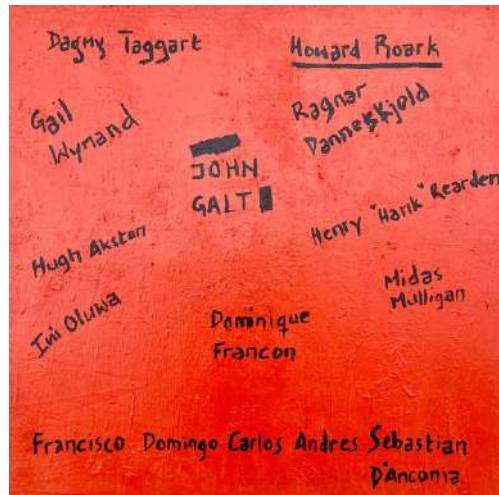 Dagny Taggart
Howard Roark
Gail
Wynand
Ragnar
Danneskjold
JOHN
GALT
Henry "Hank" Rearden
Hugh Akston
Midas
Mulligan
Ini Oluwa
Dominique
Francon
Francisco Domingo Carlos Andres Sebastian
D'Anconia